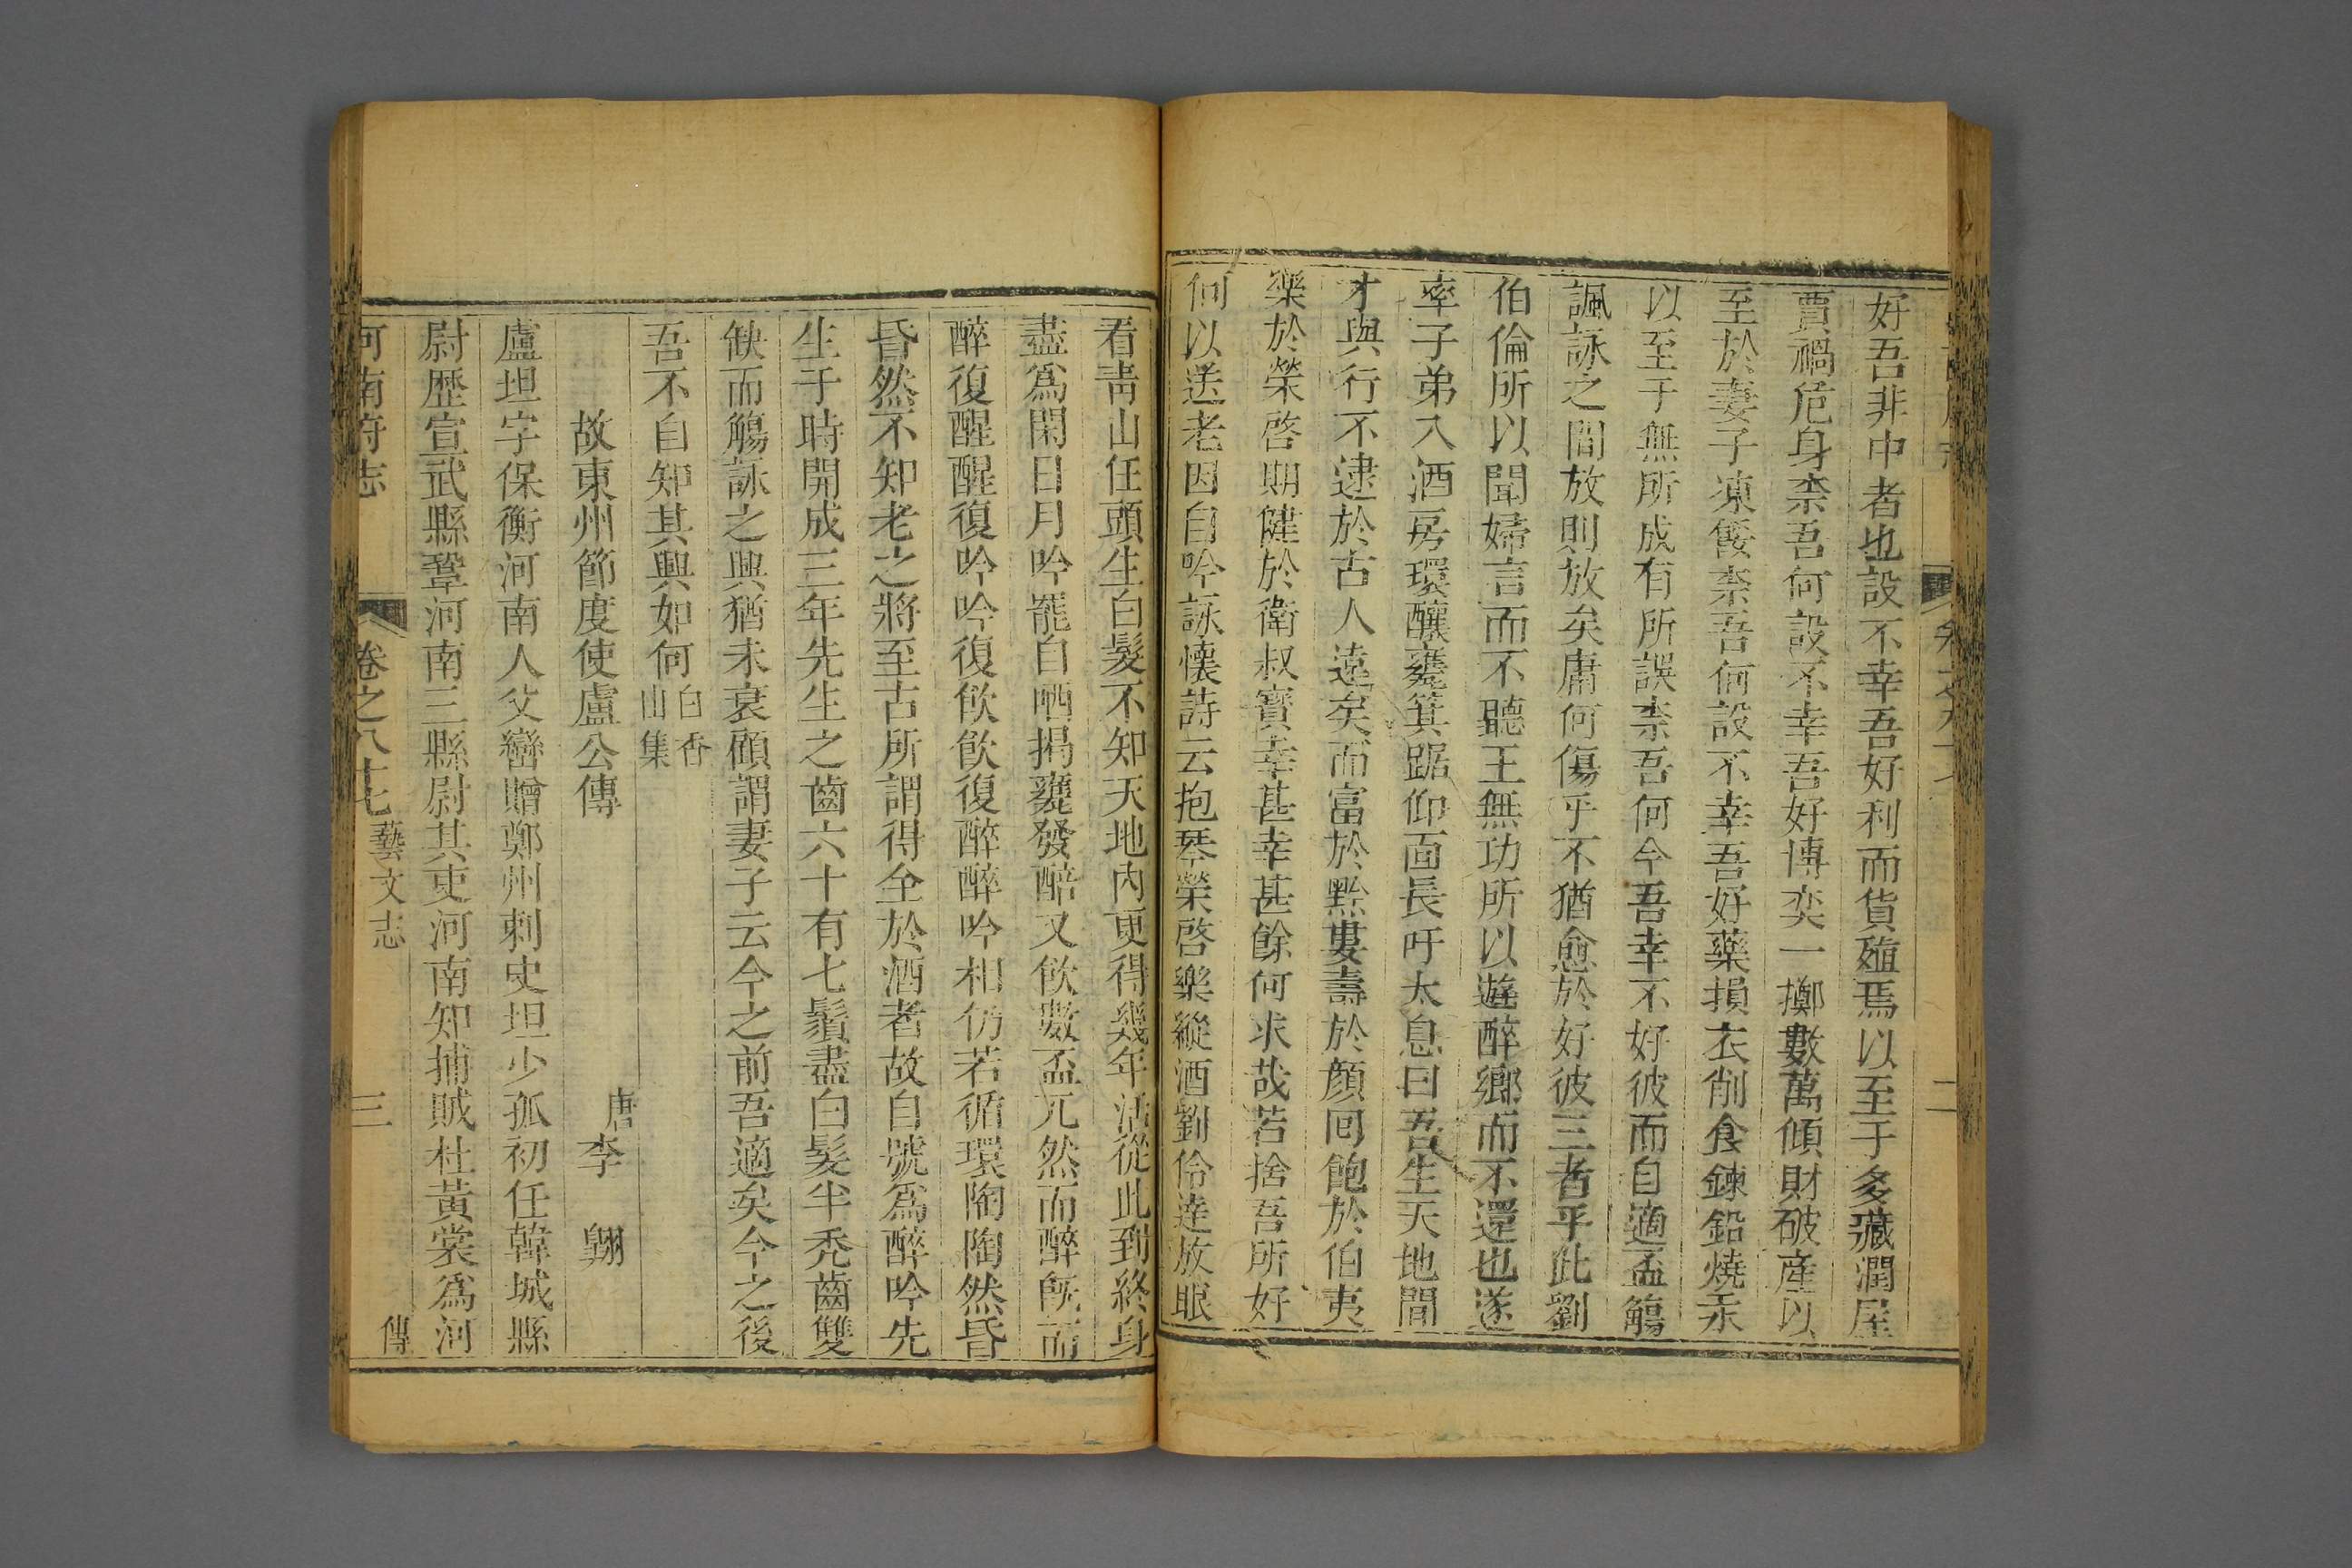 好吾非中者也設不幸吾好利而貨殖焉以至于多藏潤屋
賈禍危身柰吾何設不幸吾好博奕一擲數萬傾財破產以
至於妻子凍餒柰吾何設不幸吾好藥損衣削食鍊鉛燒汞
以至于無所成有所誤柰吾何今吾幸不好彼而自適盃觴
諷詠之間放則放矣庸何傷乎不猶愈於好彼三者乎此劉
伯倫所以聞婦言而不聽王無功所以遊醉鄉而不還也遂
率子弟入酒房環釀甕箕踞仰面長吁太息曰吾生天地間
才與行不逮於古人遠矣而富於黔婁壽於顏回飽於伯夷
樂於榮啓期健於衛叔寶幸甚幸甚餘何求哉若捨吾所好
何以送老因自吟詠懷詩云抱琴榮啓樂縱酒劉伶達放眼
看靑山任頭生白髮不知天地內更得幾年活從此到終身
盡爲閑日月吟罷自哂揭甕發醅又飲數盃兀然而醉既而
醉復醒醒復吟吟復飲飲復醉醉吟相仍若循環陶陶然昏
昏然不知老之將至古所謂得全於酒者故自號爲醉吟先
生于時開成三年先生之齒六十有七鬚盡白髮半禿齒雙
缺而觴詠之興猶未衰顧謂妻子云今之前吾適矣今之後
吾不自知其興如何白香山集
故東州節度使盧公傳
唐李翺
盧坦字保衡河南人父巒贈鄭州刺史坦少孤初任韓城縣
尉歷宣武縣鞏河南三縣尉其吏河南知捕賊杜黃裳爲河
河南府志 卷之八十七 藝文志 三 傳